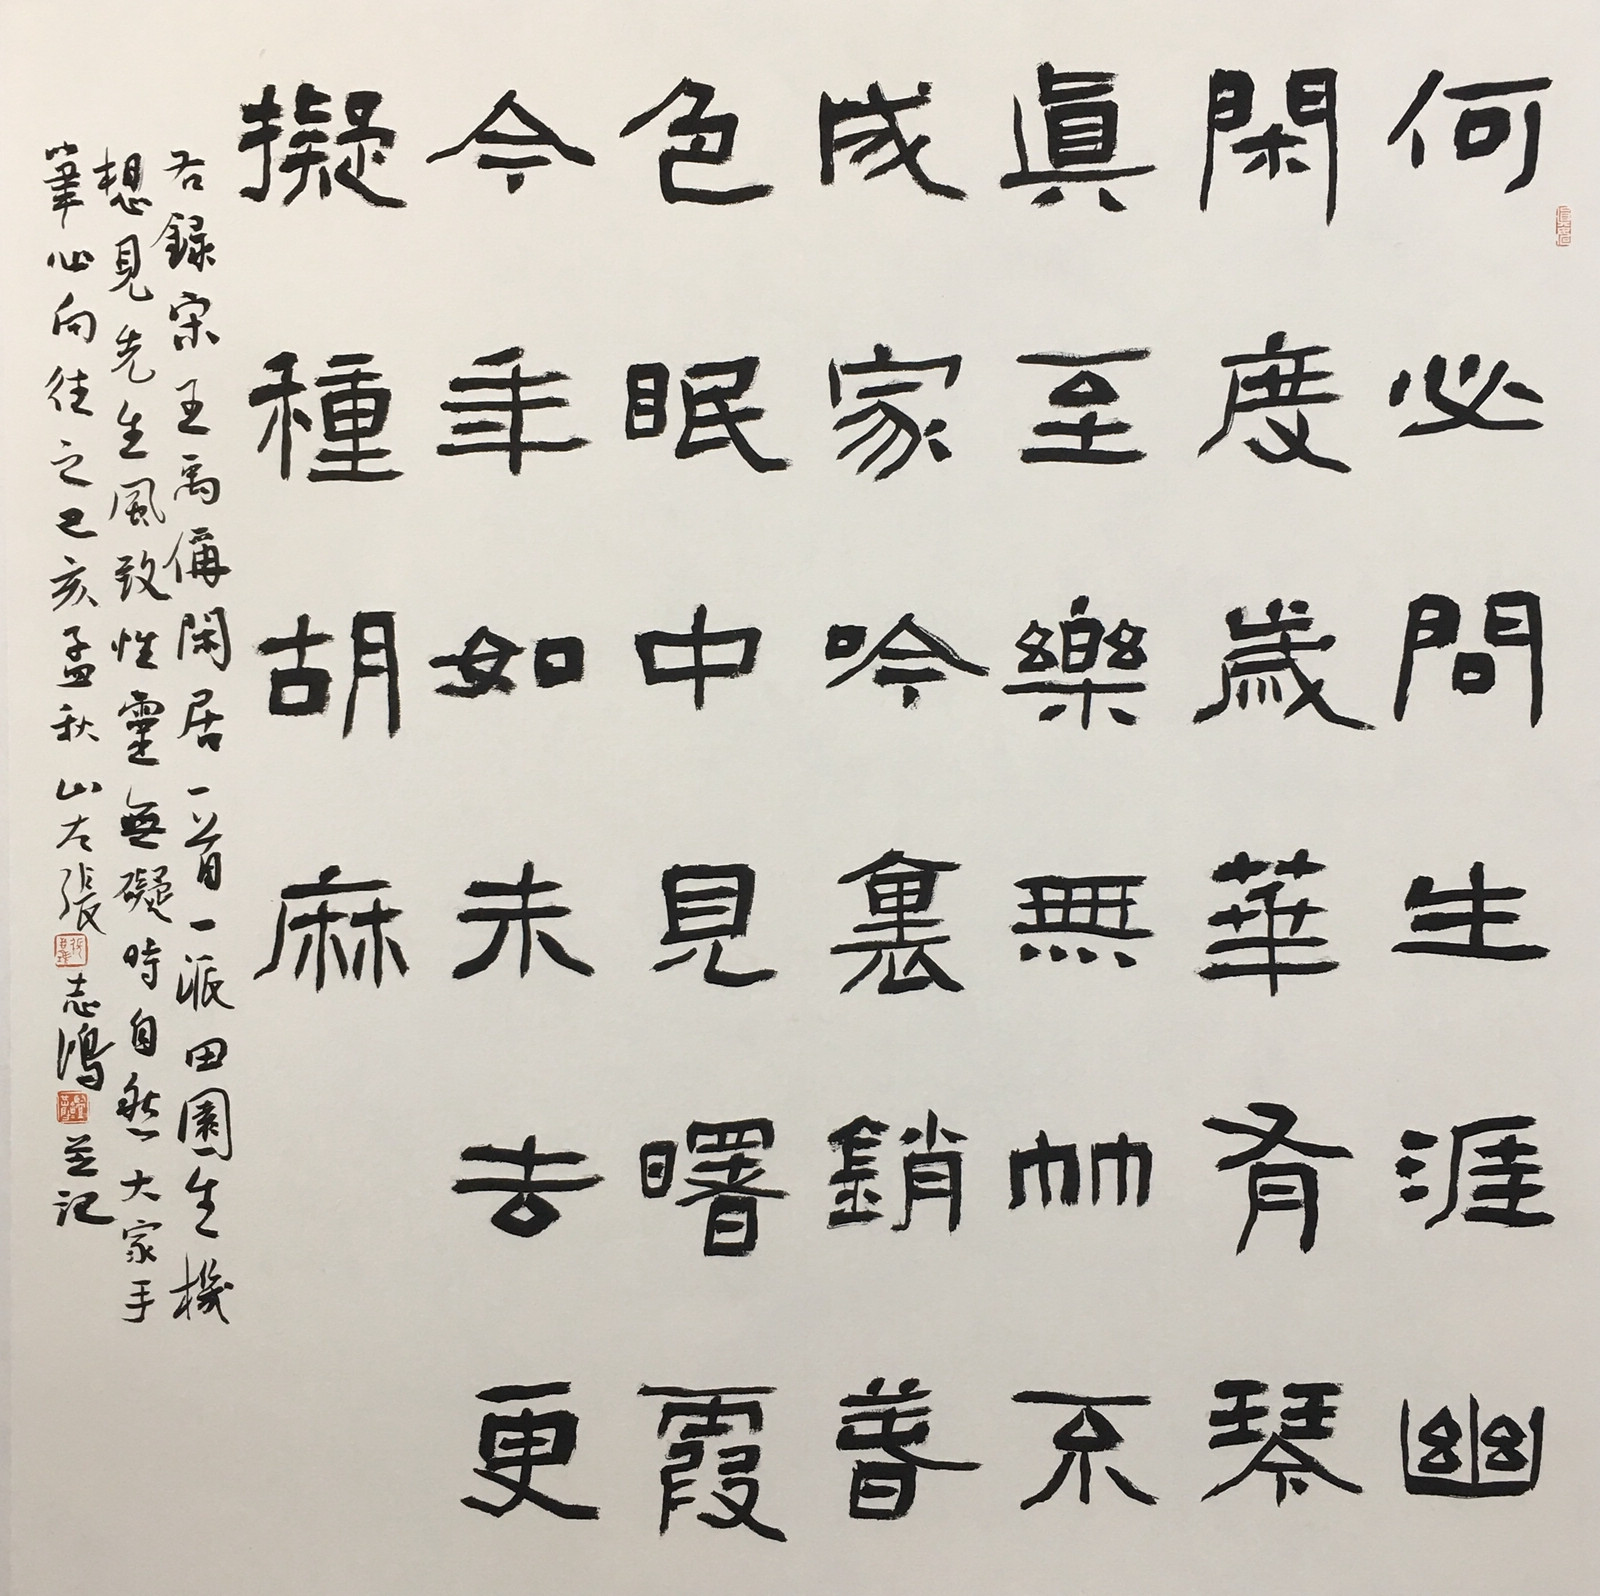 何必問生涯幽
閑度歲華有琴
眞至樂無竹不
成家吟裏銷春
色眠中見曙霞
今年如未去更
擬種胡麻
右錄宋王禹偁閑居一首一派田園生機
想見先生風致性靈無礙時自然大家手
筆心向往之己亥孟秋山左張志鴻並記